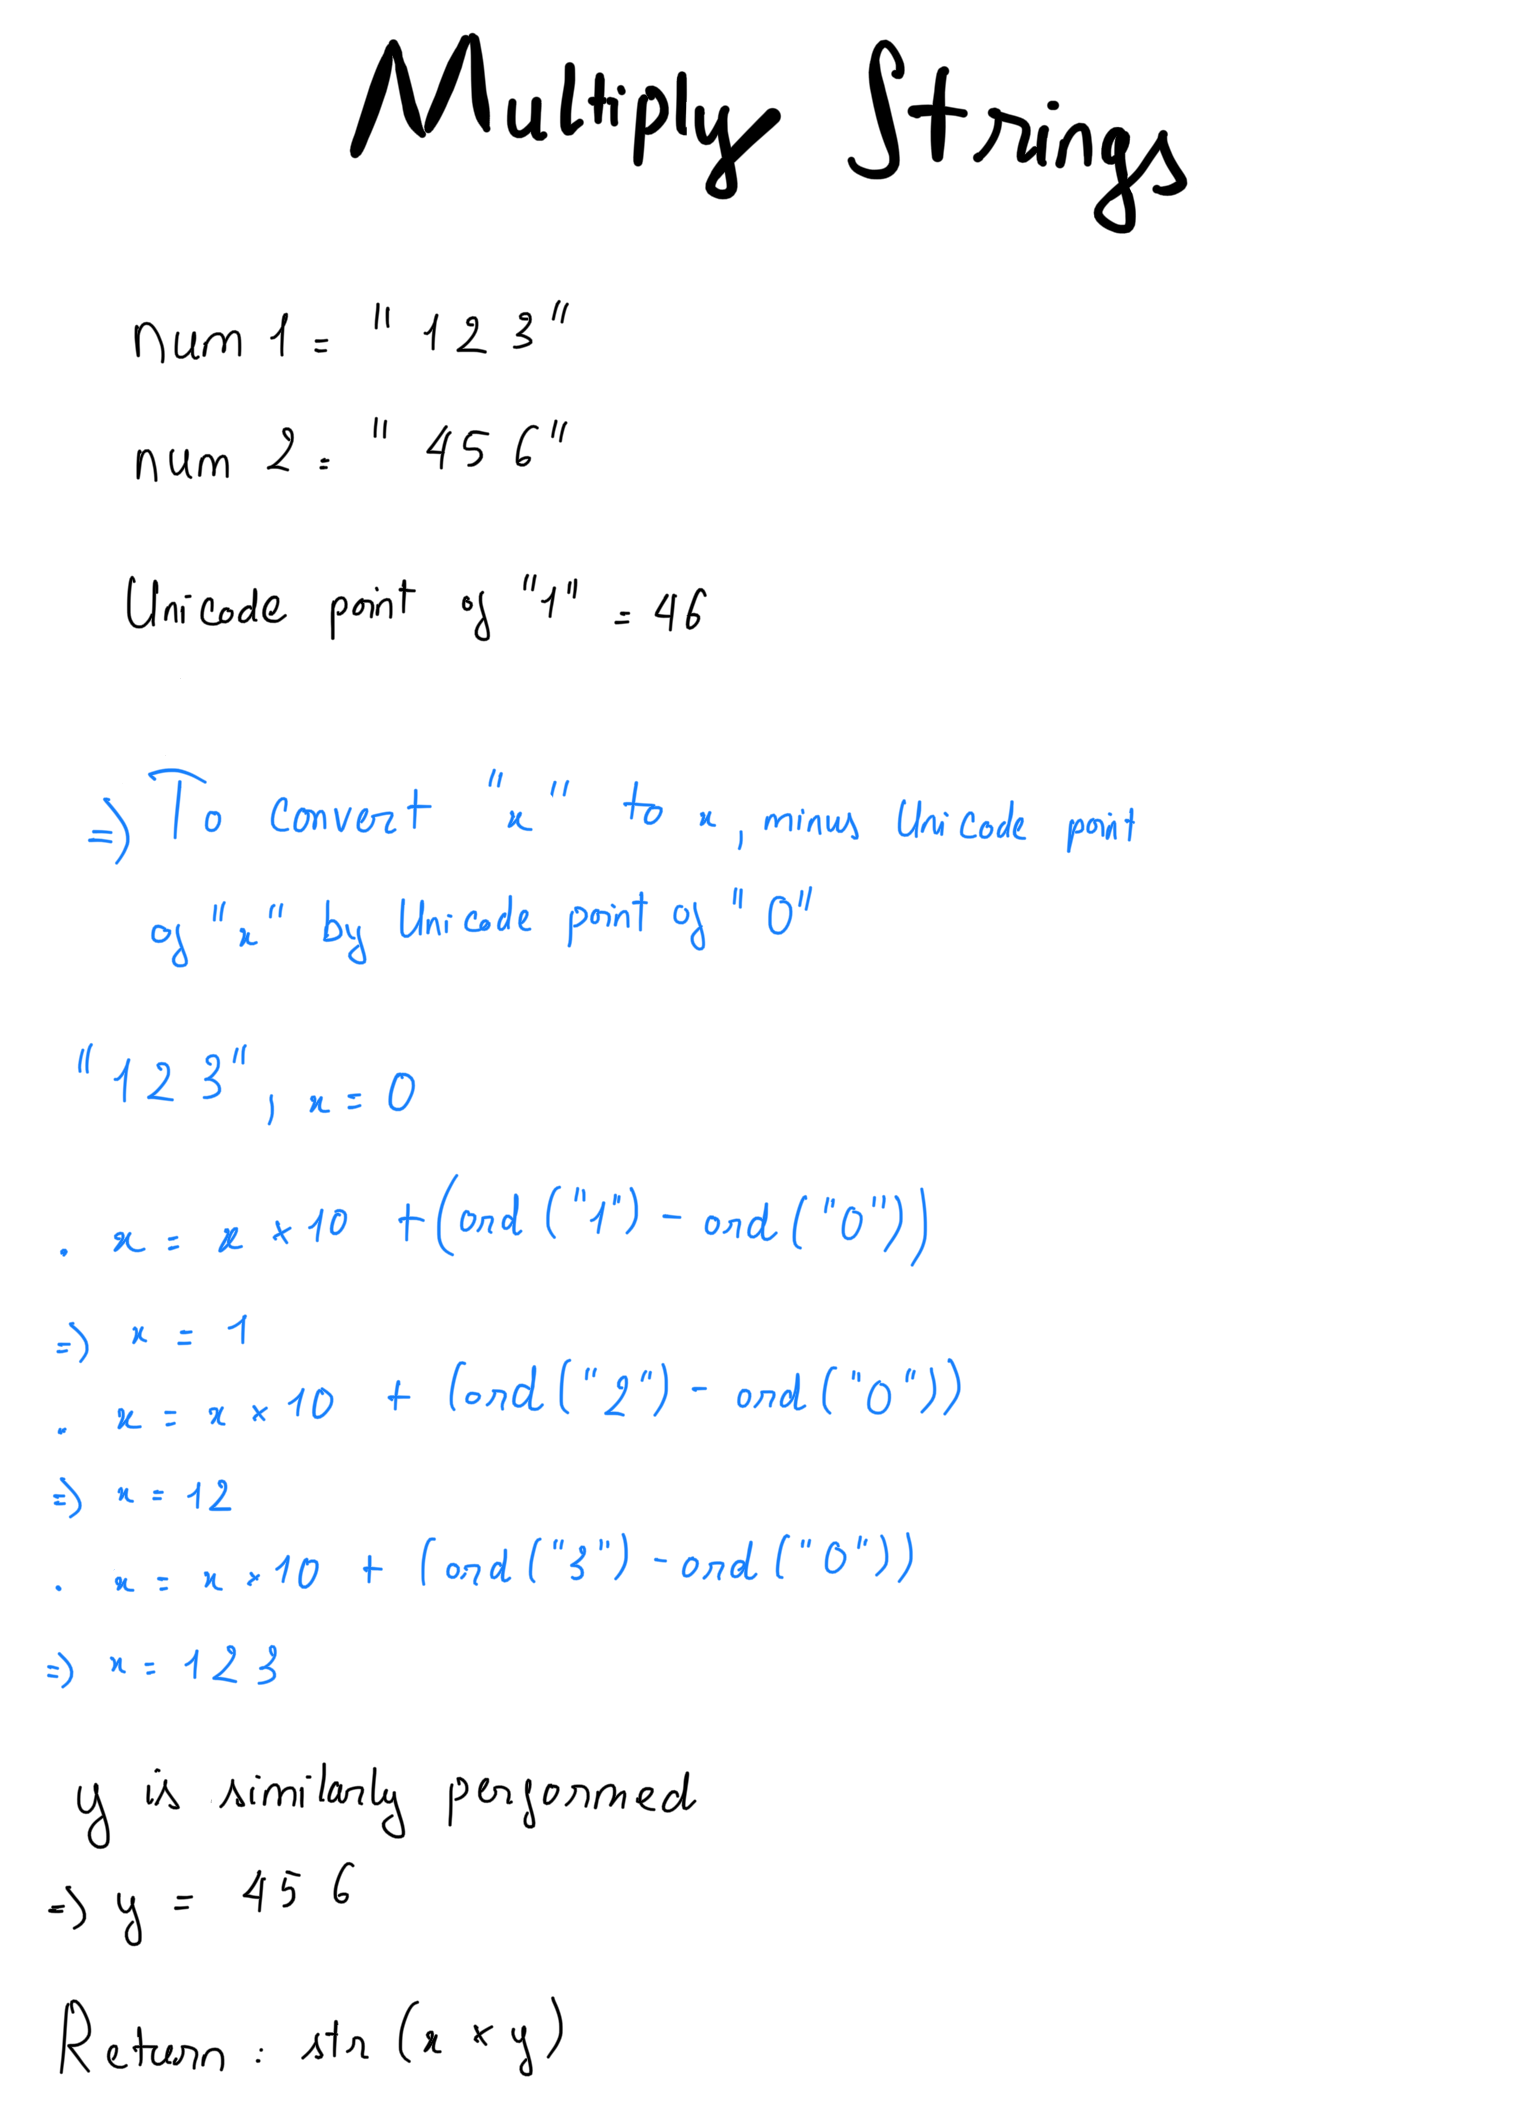 Multiply Strings
num 1 = "123"
num 2 = "456"
Unicode point of "1" = 46
=> To convert "x" to x, minus Unicode point
of "x" by Unicode point of "0"
"123", x = 0
. x = x × 10 + (ord ("1") - ord ("0"))
=> x = 1
. x = x × 10 + (ord ("2") - ord ("0"))
=> x = 12
. x = x × 10 + (ord ("3") - ord ("0"))
=> x = 123
y is similarly performed
=> y = 456
Return : str (x × y)